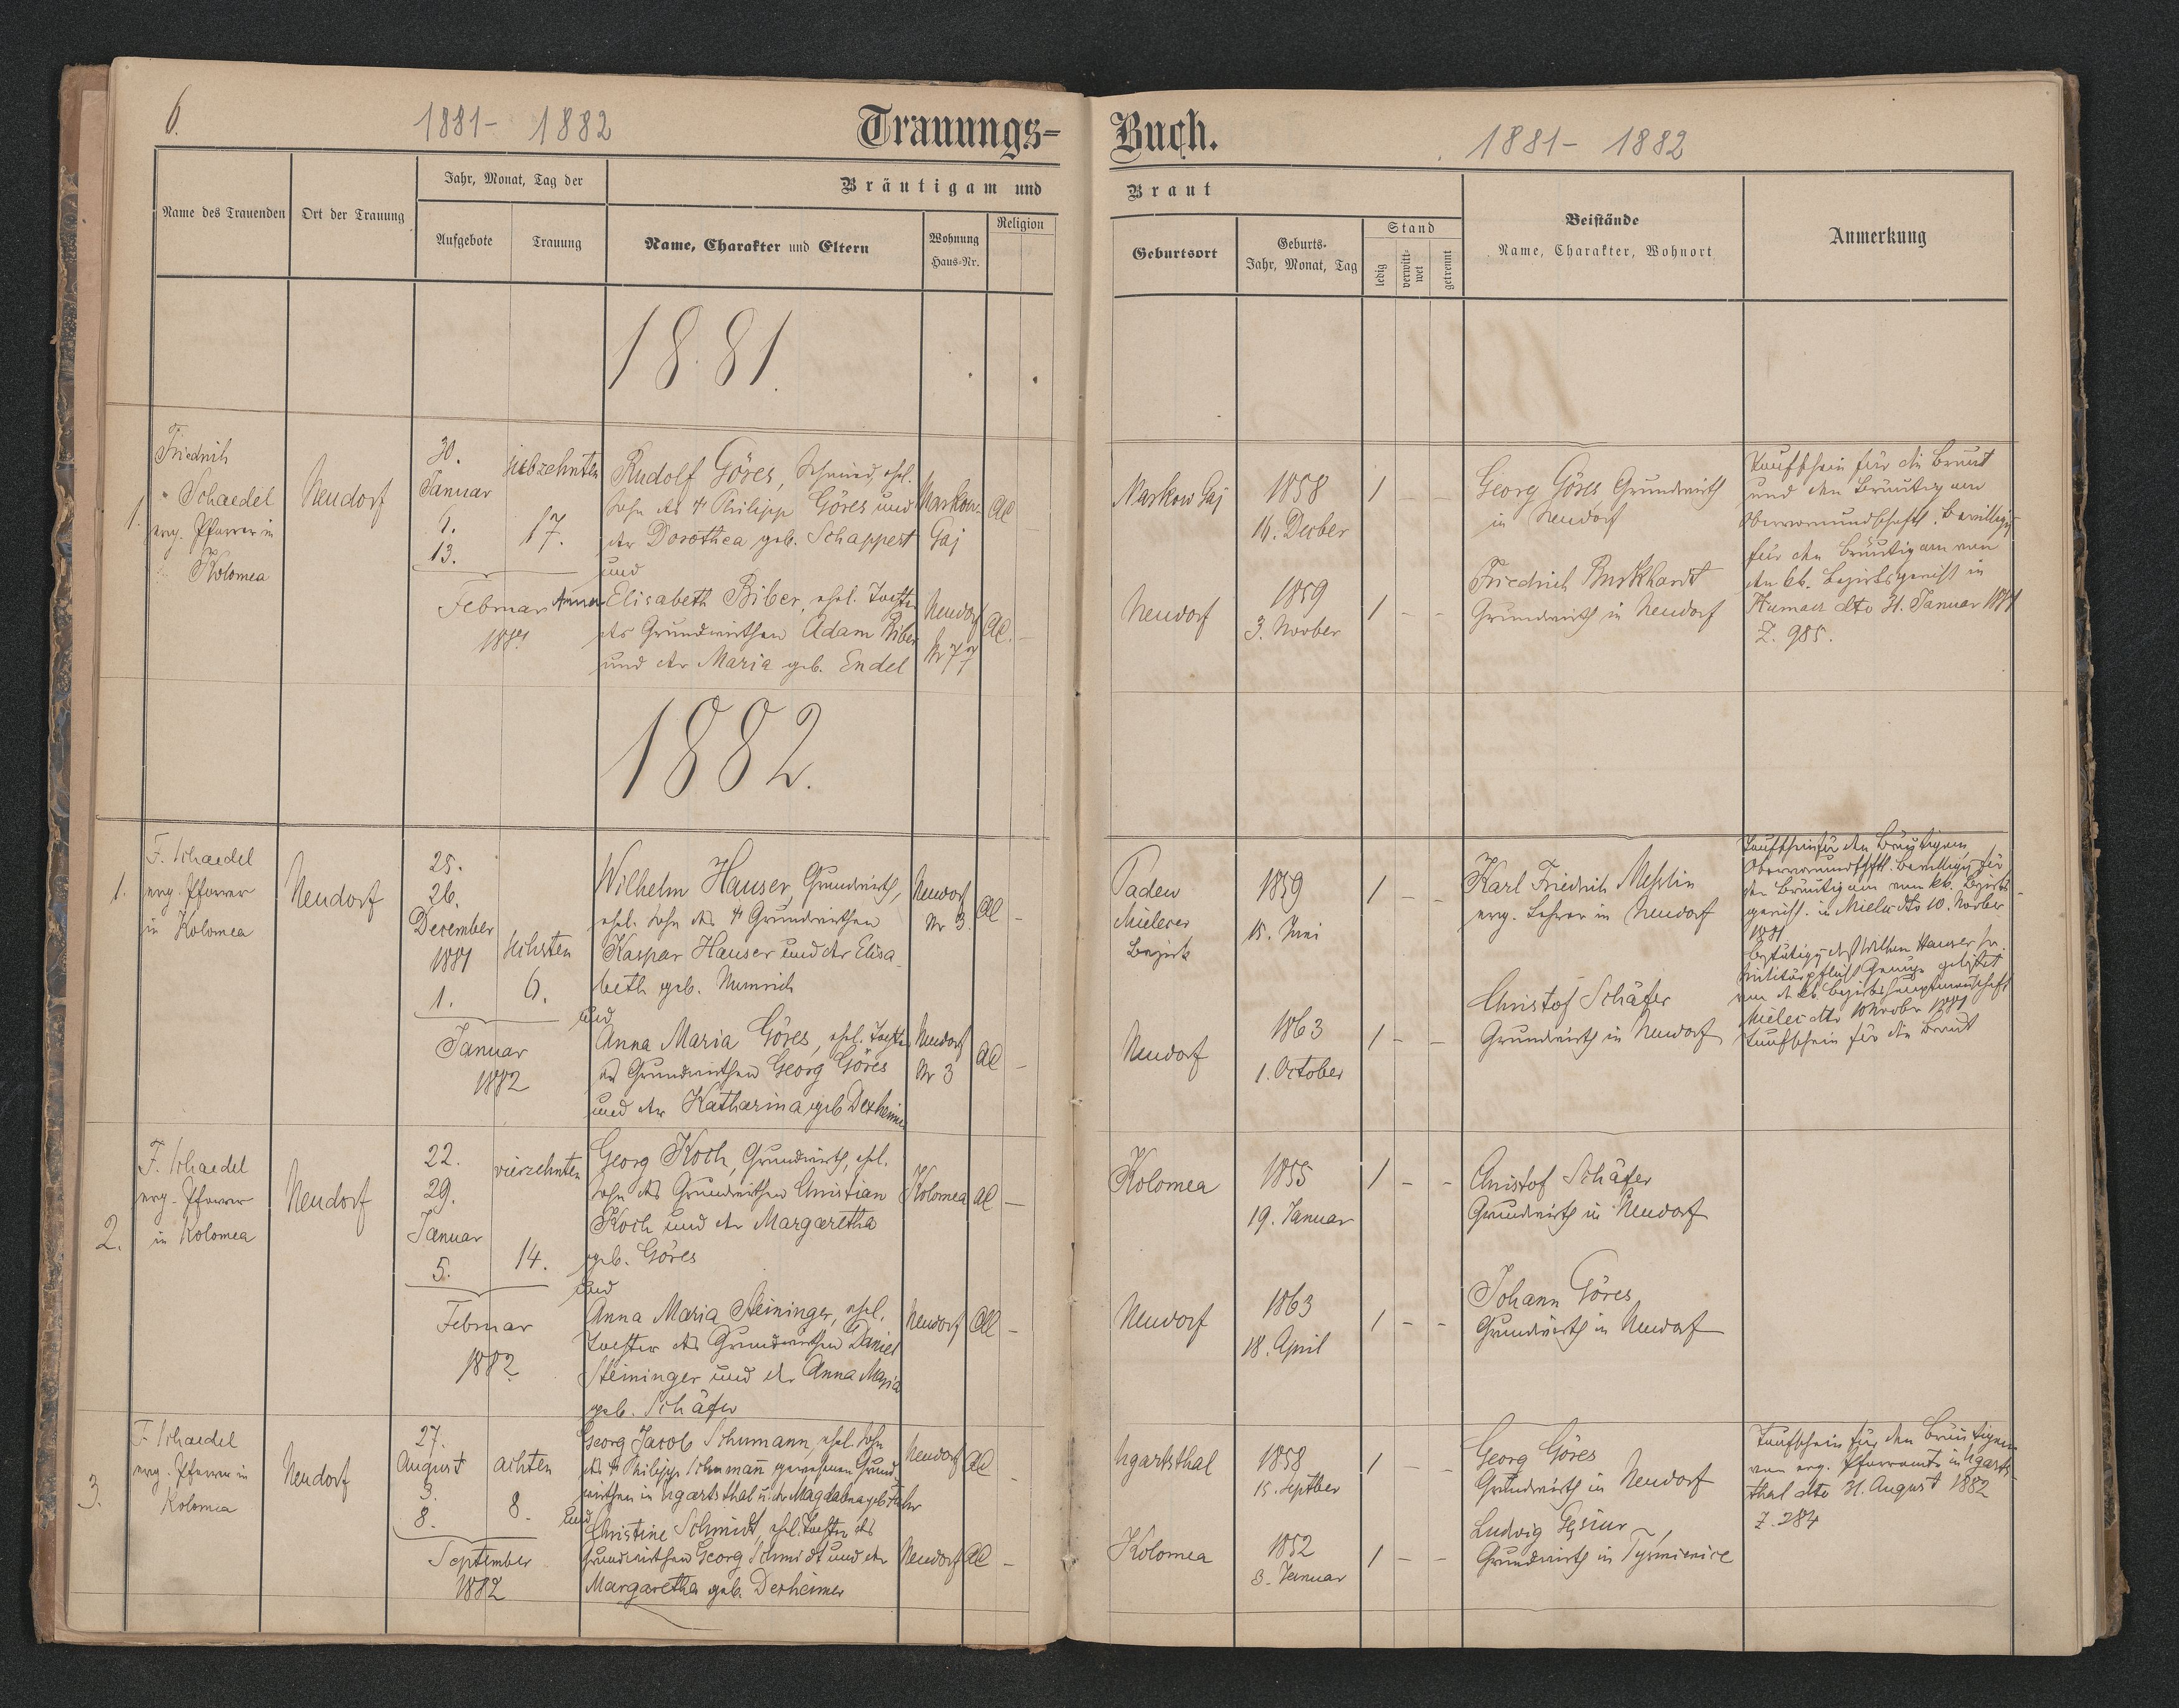 6.
1881- 1882
Trauungs-
Name des Trauenden
Ort der Trauung
Jahr, Monat, Tag der
Aufgebote
Trauung
Bräutigam und
Name, Charakter und Eltern
Wohnung
Haus-Nr.
Religion
1881.
1.
Friedrich
Schaedel
evg. Pfarrer in
Kolomea
Neudorf
30.
Januar
6.
13.
Februar
1881
siebzehnten
17.
Rudolf Göres, Schmied, ehel.
Sohn des † Philipp Göres und
der Dorothea geb. Schappert
und
Anna Elisabeth Biber, ehel. Tochter
des Grundwirthen Adam Biber
und der Maria geb. Endel
Markow.
Gaj
AC
Neudorf
Nr 77
AC.
1882.
1.
F. Schaedel
evg. Pfarrer
in Kolomea
Neudorf
25.
26.
December
1881
1.
Januar
1882
sechsten
6.
Wilhelm Hauser, Grundwirth,
ehel. Sohn des † Grundwirthen
Kaspar Hauser und der Elisa
beth geb. Numrich
und
Anna Maria Göres, ehel. Tochter
des Grundwirthen Georg Göres
und der Katharina geb Derheimer
Neudorf
Nr 3.
AC
Neudorf
Nr 3
AC
2.
F. Schaedel
evg. Pfarrer
in Kolomea
Neudorf
22.
29.
Januar
5.
Februar
1882
vierzehnten
14.
Georg Koch, Grundwirth, ehel.
Sohn des Grundwirthen Christian
Koch und der Margaretha
geb. Göres
und
Anna Maria Steininger, ehel.
Tochter des Grundwirthen Daniel
Steininger und der Anna Maria
geb. Schäfer
Kolomea
AC
Neudorf
AC
3.
F. Schaedel
evg. Pfarrer in
Kolomea
Neudorf
27.
August
3.
8.
September
1882
achten
8.
Georg Jacob Schumann, ehel. Sohn
des † Philipp Schumann gewesenen Grund
wirthen in Ugartsthal u. der Magdalena geb
und
Christine Schmidt, ehel. Tochter des
Grundwirthen Georg Schmidt und der
Margaretha geb. Derheimer
Neudorf
AC
Neudorf
AC
Buch.
1881- 1882
Braut
Geburtsort
Geburts-
Jahr, Monat, Tag
Stand
ledig
verwitt-
wet
getrennt
Beistände
Name, Charakter, Wohnort
Anmerkung
Markow Gaj
1858
16. Decber
1
Georg Göres Grundwirth
in Neudorf
Neudorf
1859
3. Novber
1
Friedrich Burkhardt
Grundwirth in Neudorf
Taufschein für die Braut
und den Bräutigam
Obervormundschaftl. Bewilligg
für den Bräutigam von
den kk. Bezirksgericht in
dto 31. Januar 1881
Z. 985.
Padew
Mielecer
Bezirk
1859
15. Juni
1
Karl Friedrich Meßlin
evg. Lehrer in Neudorf
Neudorf
1863
1. October
1
Christof Schäfer
Grundwirth in Neudorf
Taufschein für den Bräutigam
Obervormundschftl. Bewilligg für
den Bräutigam vom kk. Bezirks
gericht. in Mielec dto 10. Novber
1881
Bestätigg daß Wilhem Hauser
Militärpflicht Genüge geleistet
von der kk. Bezirkshauptmannschaft
Mielec dto 10 Novber 1881
Taufschein für die Braut
Kolomea
1855
19. Januar
1
Christof Schäfer
Grundwirth in Neudorf
Neudorf
1863
18. April
1
Johann Göres
Grundwirth in Neudorf
Ugartsthal
1858
15. Septber
1
Georg Göres
Grundwirth in Neudorf
Kolomea
1852
3. Januar
1
Ludwig
Grundwirth in Tysmienice
Taufschein für den Bräutigam
vom evg. Pfarramte in Ugarts-
thal dto 31. August 1882
Z. 284